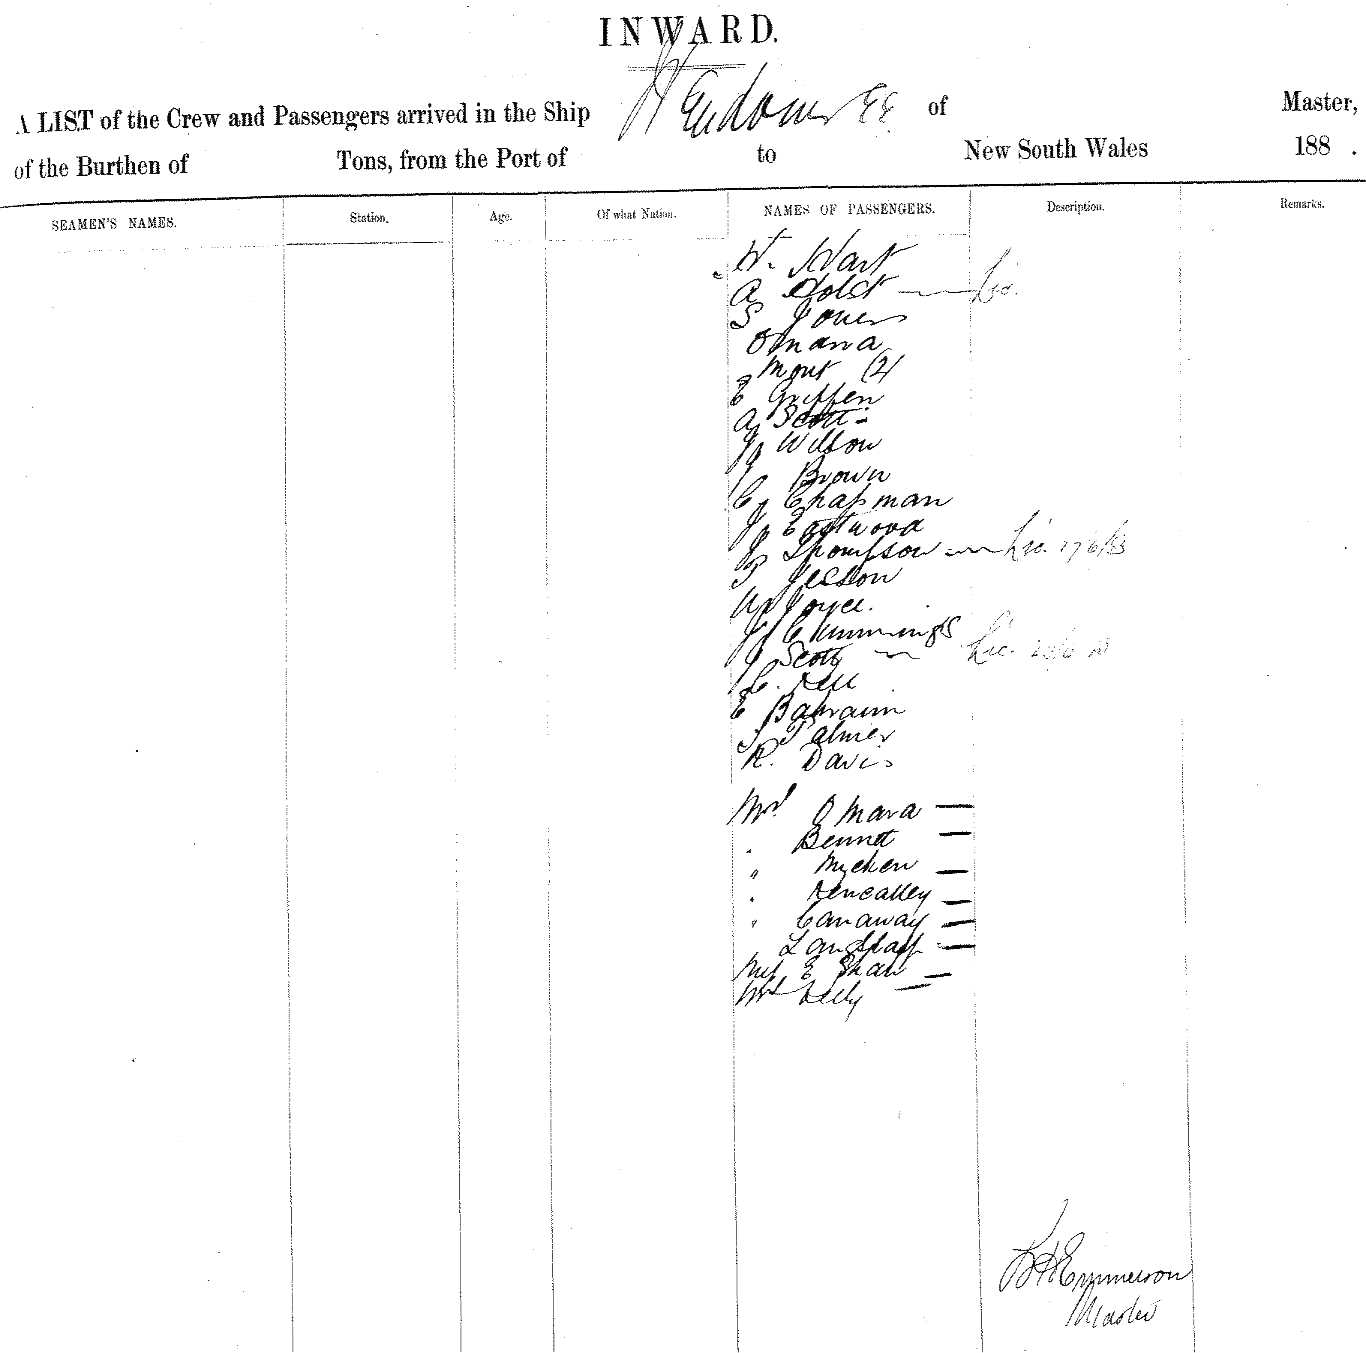 INWARD.
A LIST of the Crew and Passengers arrived in the Ship of Master,
of the Burthen of Tons, from the Port of to New South Wales 188 .
SEAMEN'S NAMES. Station. Age. Of what Nation. NAMES OF PASSENGERS. Description. Remarks.
W. Hart
A Holst Lic.
S Jones
Omara
(2)
E Griffen
A Scott
J Wilson
J Brown
C Chapman
J Eastwood
J Thompson Lic.
J Jesson
W Joyce.
J Cummings
J Scott Lic.
C.
E Bahraim
J Palmer
R. Davis
Mrs OMara
" Bennet
"
"
" Canaway
E Shaw
Mrs Kelly
Emmerson
Master